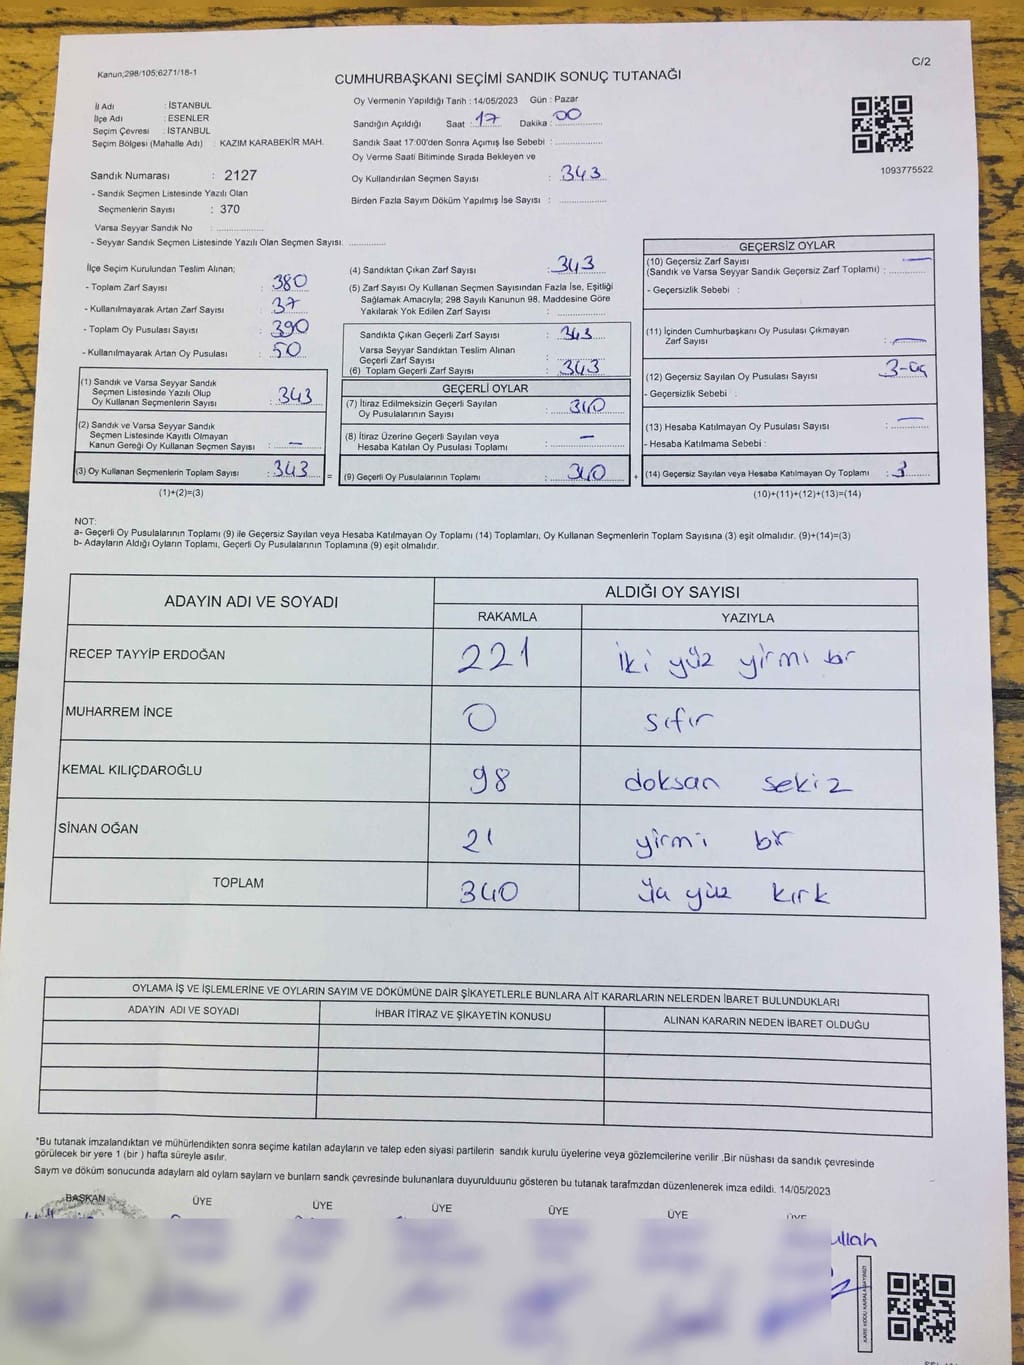 Kanun;298/105;6271/18-1
C/2
CUMHURBAŞKANI SEÇİMİ SANDIK SONUÇ TUTANAĞI
İl Adı : İSTANBUL
İlçe Adı : ESENLER
Seçim Çevresi : İSTANBUL
Seçim Bölgesi (Mahalle Adı) : KAZIM KARABEKİR MAH.
Sandık Numarası : 2127
- Sandık Seçmen Listesinde Yazılı Olan
Seçmenlerin Sayısı : 370
Varsa Seyyar Sandık No : ..............
- Seyyar Sandık Seçmen Listesinde Yazılı Olan Seçmen Sayısı. ............
Oy Vermenin Yapıldığı Tarih : 14/05/2023 Gün : Pazar
Sandığın Açıldığı Saat : 17 Dakika : 00
Sandık Saat 17:00'den Sonra Açımış İse Sebebi : ..............
Oy Verme Saati Bitiminde Sırada Bekleyen ve
Oy Kullandırılan Seçmen Sayısı : 343
Birden Fazla Sayım Döküm Yapılmış İse Sayısı : ..............
1093775522
İlçe Seçim Kurulundan Teslim Alınan;
- Toplam Zarf Sayısı : 380
- Kullanılmayarak Artan Zarf Sayısı : 37
- Toplam Oy Pusulası Sayısı : 390
- Kullanılmayarak Artan Oy Pusulası : 50
(1) Sandık ve Varsa Seyyar Sandık
Seçmen Listesinde Yazılı Olup
Oy Kullanan Seçmenlerin Sayısı : 343
(2) Sandık ve Varsa Seyyar Sandık
Seçmen Listesinde Kayıtlı Olmayan
Kanun Gereği Oy Kullanan Seçmen Sayısı : —
(3) Oy Kullanan Seçmenlerin Toplam Sayısı : 343 =
(1)+(2)=(3)
(4) Sandıktan Çıkan Zarf Sayısı : 343
(5) Zarf Sayısı Oy Kullanan Seçmen Sayısından Fazla İse, Eşitliği
Sağlamak Amacıyla; 298 Sayılı Kanunun 98. Maddesine Göre
Yakılarak Yok Edilen Zarf Sayısı : ..............
Sandıkta Çıkan Geçerli Zarf Sayısı : 343
Varsa Seyyar Sandıktan Teslim Alınan
Geçerli Zarf Sayısı : ..............
(6) Toplam Geçerli Zarf Sayısı : 343
GEÇERLİ OYLAR
(7) İtiraz Edilmeksizin Geçerli Sayılan
Oy Pusulalarının Sayısı : 340
(8) İtiraz Üzerine Geçerli Sayılan veya
Hesaba Katılan Oy Pusulası Toplamı : —
(9) Geçerli Oy Pusulalarının Toplamı : 340 +
GEÇERSİZ OYLAR
(10) Geçersiz Zarf Sayısı —
(Sandık ve Varsa Seyyar Sandık Geçersiz Zarf Toplamı) : ..........
- Geçersizlik Sebebi :
(11) İçinden Cumhurbaşkanı Oy Pusulası Çıkmayan
Zarf Sayısı : —
(12) Geçersiz Sayılan Oy Pusulası Sayısı : 3-üç
- Geçersizlik Sebebi :
(13) Hesaba Katılmayan Oy Pusulası Sayısı : —
- Hesaba Katılmama Sebebi :
(14) Geçersiz Sayılan veya Hesaba Katılmayan Oy Toplamı : 3
(10)+(11)+(12)+(13)=(14)
NOT:
a- Geçerli Oy Pusulalarının Toplamı (9) ile Geçersiz Sayılan veya Hesaba Katılmayan Oy Toplamı (14) Toplamları, Oy Kullanan Seçmenlerin Toplam Sayısına (3) eşit olmalıdır. (9)+(14)=(3)
b- Adayların Aldığı Oyların Toplamı, Geçerli Oy Pusulalarının Toplamına (9) eşit olmalıdır.
ADAYIN ADI VE SOYADI
ALDIĞI OY SAYISI
RAKAMLA YAZIYLA
RECEP TAYYİP ERDOĞAN 221 iki yüz yirmi bir
MUHARREM İNCE 0 sıfır
KEMAL KILIÇDAROĞLU 98 doksan sekiz
SİNAN OĞAN 21 yirmi bir
TOPLAM 340 üç yüz kırk
OYLAMA İŞ VE İŞLEMLERİNE VE OYLARIN SAYIM VE DÖKÜMÜNE DAİR ŞİKAYETLERLE BUNLARA AİT KARARLARIN NELERDEN İBARET BULUNDUKLARI
ADAYIN ADI VE SOYADI İHBAR İTİRAZ VE ŞİKAYETİN KONUSU ALINAN KARARIN NEDEN İBARET OLDUĞU
*Bu tutanak imzalandıktan ve mühürlendikten sonra seçime katılan adayların ve talep eden siyasi partilerin sandık kurulu üyelerine veya gözlemcilerine verilir .Bir nüshası da sandık çevresinde
görülecek bir yere 1 (bir ) hafta süreyle asılır.
Saym ve döküm sonucunda adaylarn ald oylarn saylarn ve bunlarn sandk çevresinde bulunanlara duyurulduunu gösteren bu tutanak tarafmzdan düzenlenerek imza edildi. 14/05/2023
BAŞKAN ÜYE ÜYE ÜYE ÜYE ÜYE ÜYE
ullah